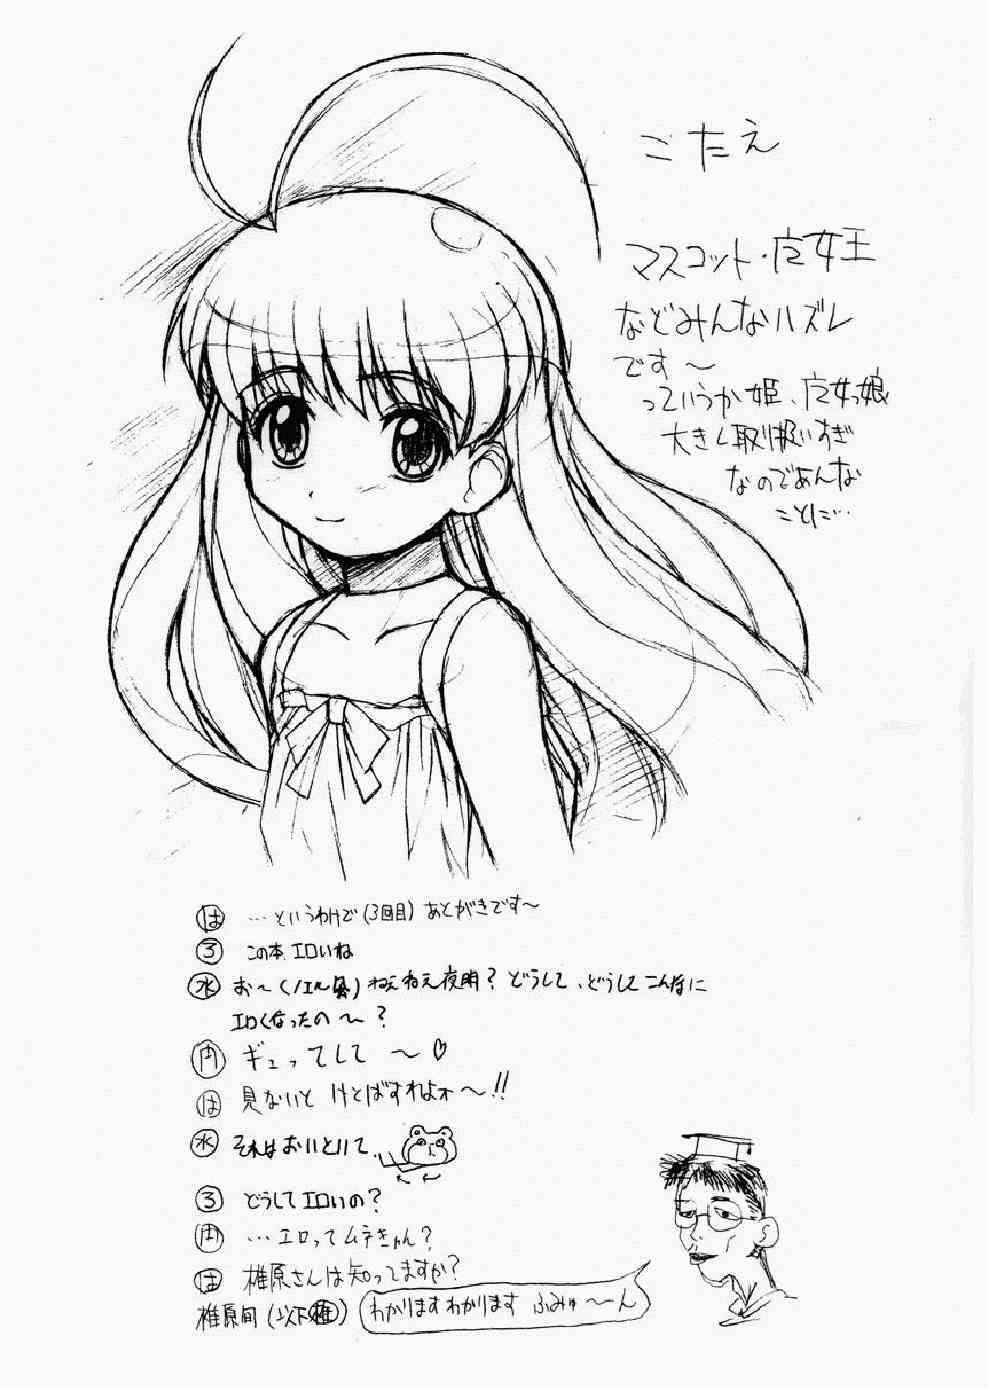 こたえ
マスコット・魔女王
などみんなハズレ
です～
っていうか姫、魔女っ娘
大きく取り扱いすぎ
なのであんな
ことに…
は …というわけで(3回目)あとがきです～
ろ この本エロいね
水 お～(ノエル風)ねえねえ夜明?どうして、どうしてこんなに
エロくなったの～?
内 ギュってして ～♡
は 見ないと けとばすわよォ～!!
水 それはおいといて、
ろ どうしてエロいの?
内 …エロってムテきゃん?
は 椎原さんは知ってますか?
椎原旬(以下椎) わかりますわかります ふみゅ～～ん